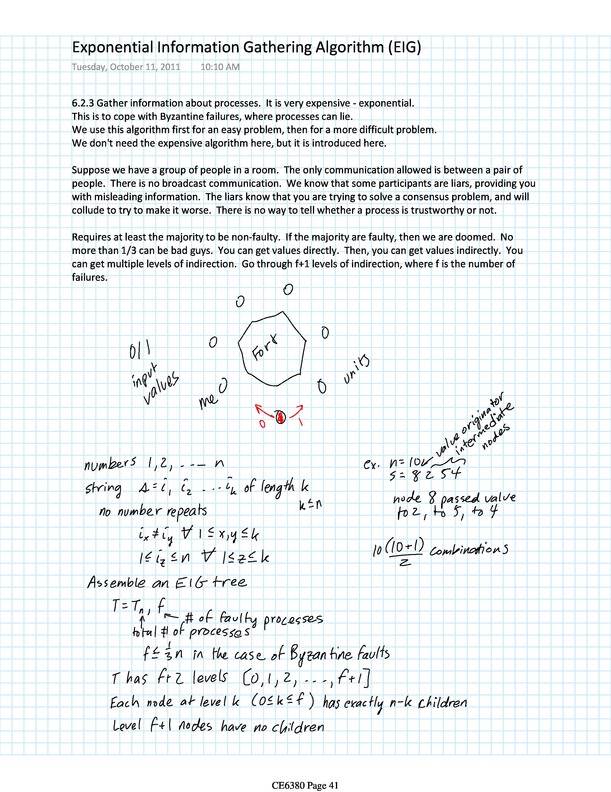 Exponential Information Gathering Algorithm (EIG)
Tuesday, October 11, 2011 10:10 AM
6.2.3 Gather information about processes. It is very expensive - exponential.
This is to cope with Byzantine failures, where processes can lie.
We use this algorithm first for an easy problem, then for a more difficult problem.
We don't need the expensive algorithm here, but it is introduced here.
Suppose we have a group of people in a room. The only communication allowed is between a pair of
people. There is no broadcast communication. We know that some participants are liars, providing you
with misleading information. The liars know that you are trying to solve a consensus problem, and will
collude to try to make it worse. There is no way to tell whether a process is trustworthy or not.
Requires at least the majority to be non-faulty. If the majority are faulty, then we are doomed. No
more than 1/3 can be bad guys. You can get values directly. Then, you can get values indirectly. You
can get multiple levels of indirection. Go through f+1 levels of indirection, where f is the number of
failures.
Fort
0/1
input
values
me
units
0 1
numbers 1, 2, ---- n
string s = i₁ i₂ ... iₖ of length k
k ≤ n
no number repeats
iₓ ≠ i_y ∀ 1 ≤ x,y ≤ k
1 ≤ i_z ≤ n ∀ 1 ≤ z ≤ k
ex. n = 10
value originator
intermediate
nodes
s = 8 2 5 4
node 8 passed value
to 2, to 5, to 4
10(10+1)/2 combinations
Assemble an EIG tree
T = Tₙ, f
# of faulty processes
total # of processes
f ≤ 1/3 n in the case of Byzantine faults
T has f+2 levels [0, 1, 2, ..., f+1]
Each node at level k (0 ≤ k ≤ f) has exactly n-k children
Level f+1 nodes have no children
CE6380 Page 41